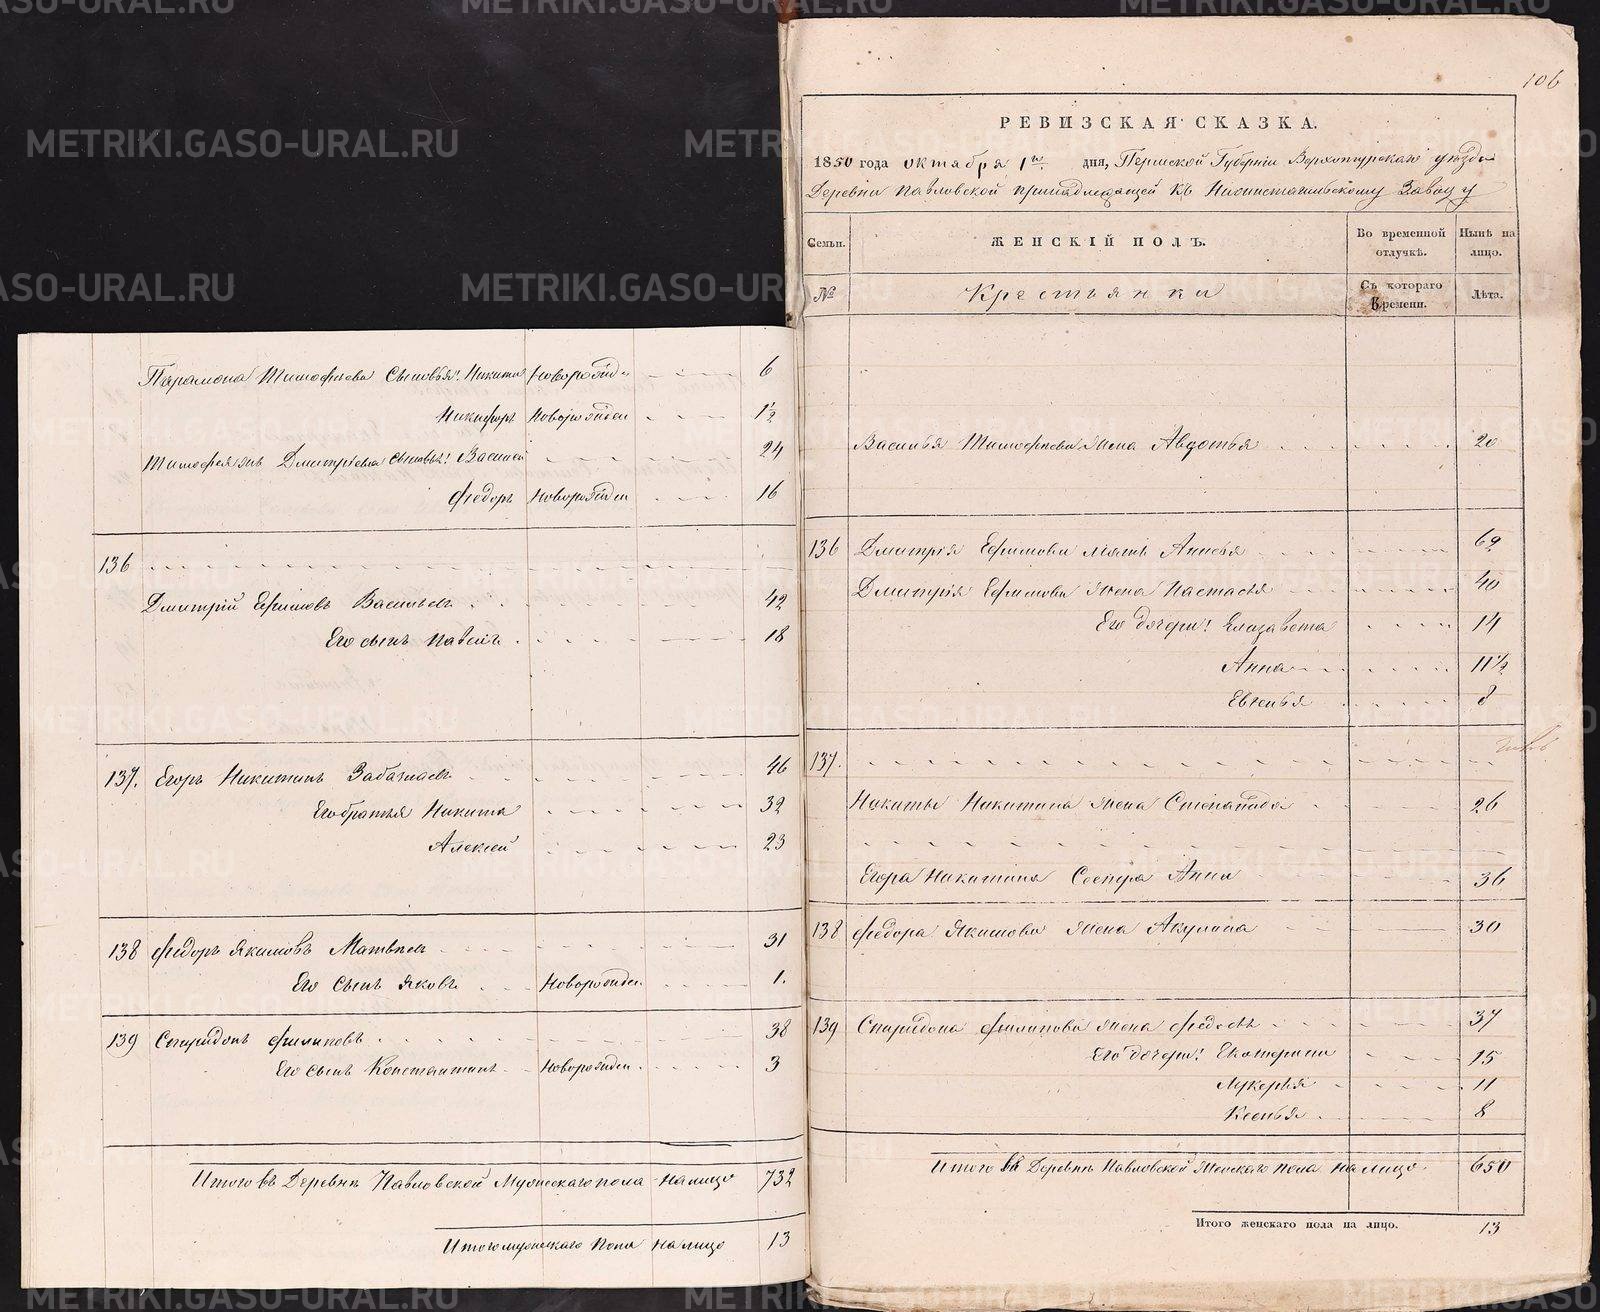 Парамона Тимофѣева Сыновья: Никита Новорожд. 6
Никифоръ Новорожден 1½
Тимофея Дмитріева сыновья: Василей 24
Федоръ Новорожден 16
136
Дмитрій Ефимовъ Васильевъ 42
Его сынъ 18
137. Егоръ Никитинъ 46
Его братья Никита 32
Алексей 23
138 Федоръ Якимовъ Матвѣевъ 31
Его сынъ Яковъ Новорожден. 1.
139 Спиридонъ Филиповъ 38
Его сынъ Константинъ Новорожден. 3
Итого въ Деревнѣ Павловской Мужескаго пола на лицо 732
Итого мужескаго пола на лицо 13
106
РЕВИЗСКАЯ СКАЗКА.
1850 года октября 1го дня, Пермской Губерніи Верхотурскаго уѣзда
Деревни Павловской принадлежащей къ Нижнетагильскому Заводу
Семьи. ЖЕНСКІЙ ПОЛЪ. Во временной отлучкѣ. Нынѣ на лицо.
№ Крестьянки Съ котораго времени. Лѣта.
Василья Тимофѣева жена Авдотья 20
136 Дмитрія Ефимова мать Анисья 69
Дмитрія Ефимова жена Настасья 40
Его дочери: Елизавета 14
Анна 11½
Евгенья 8
137.
Никиты Никитина жена Степанида 26
Егора Никитина Сестра Анна 36
138 Федора Якимова жена Акулина 30
139 Спиридона Филипова жена Федосья 37
Его дочери: Екатерина 15
Лукерья 11
Ксенья 8
Итого въ Деревнѣ Павловской Женскаго пола на лицо 650
Итого женскаго пола на лицо. 13
METRIKI.GASO-URAL.RU